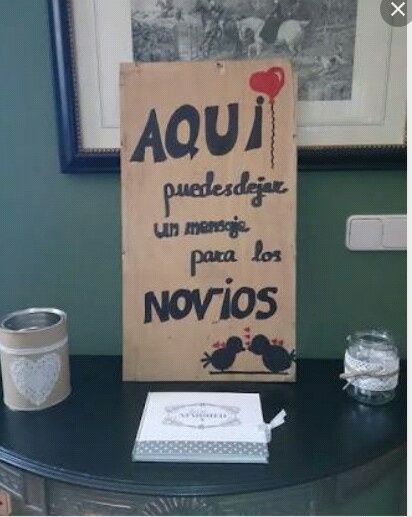 AQUI
puedes dejar
un mensaje
para los
NOVIOS